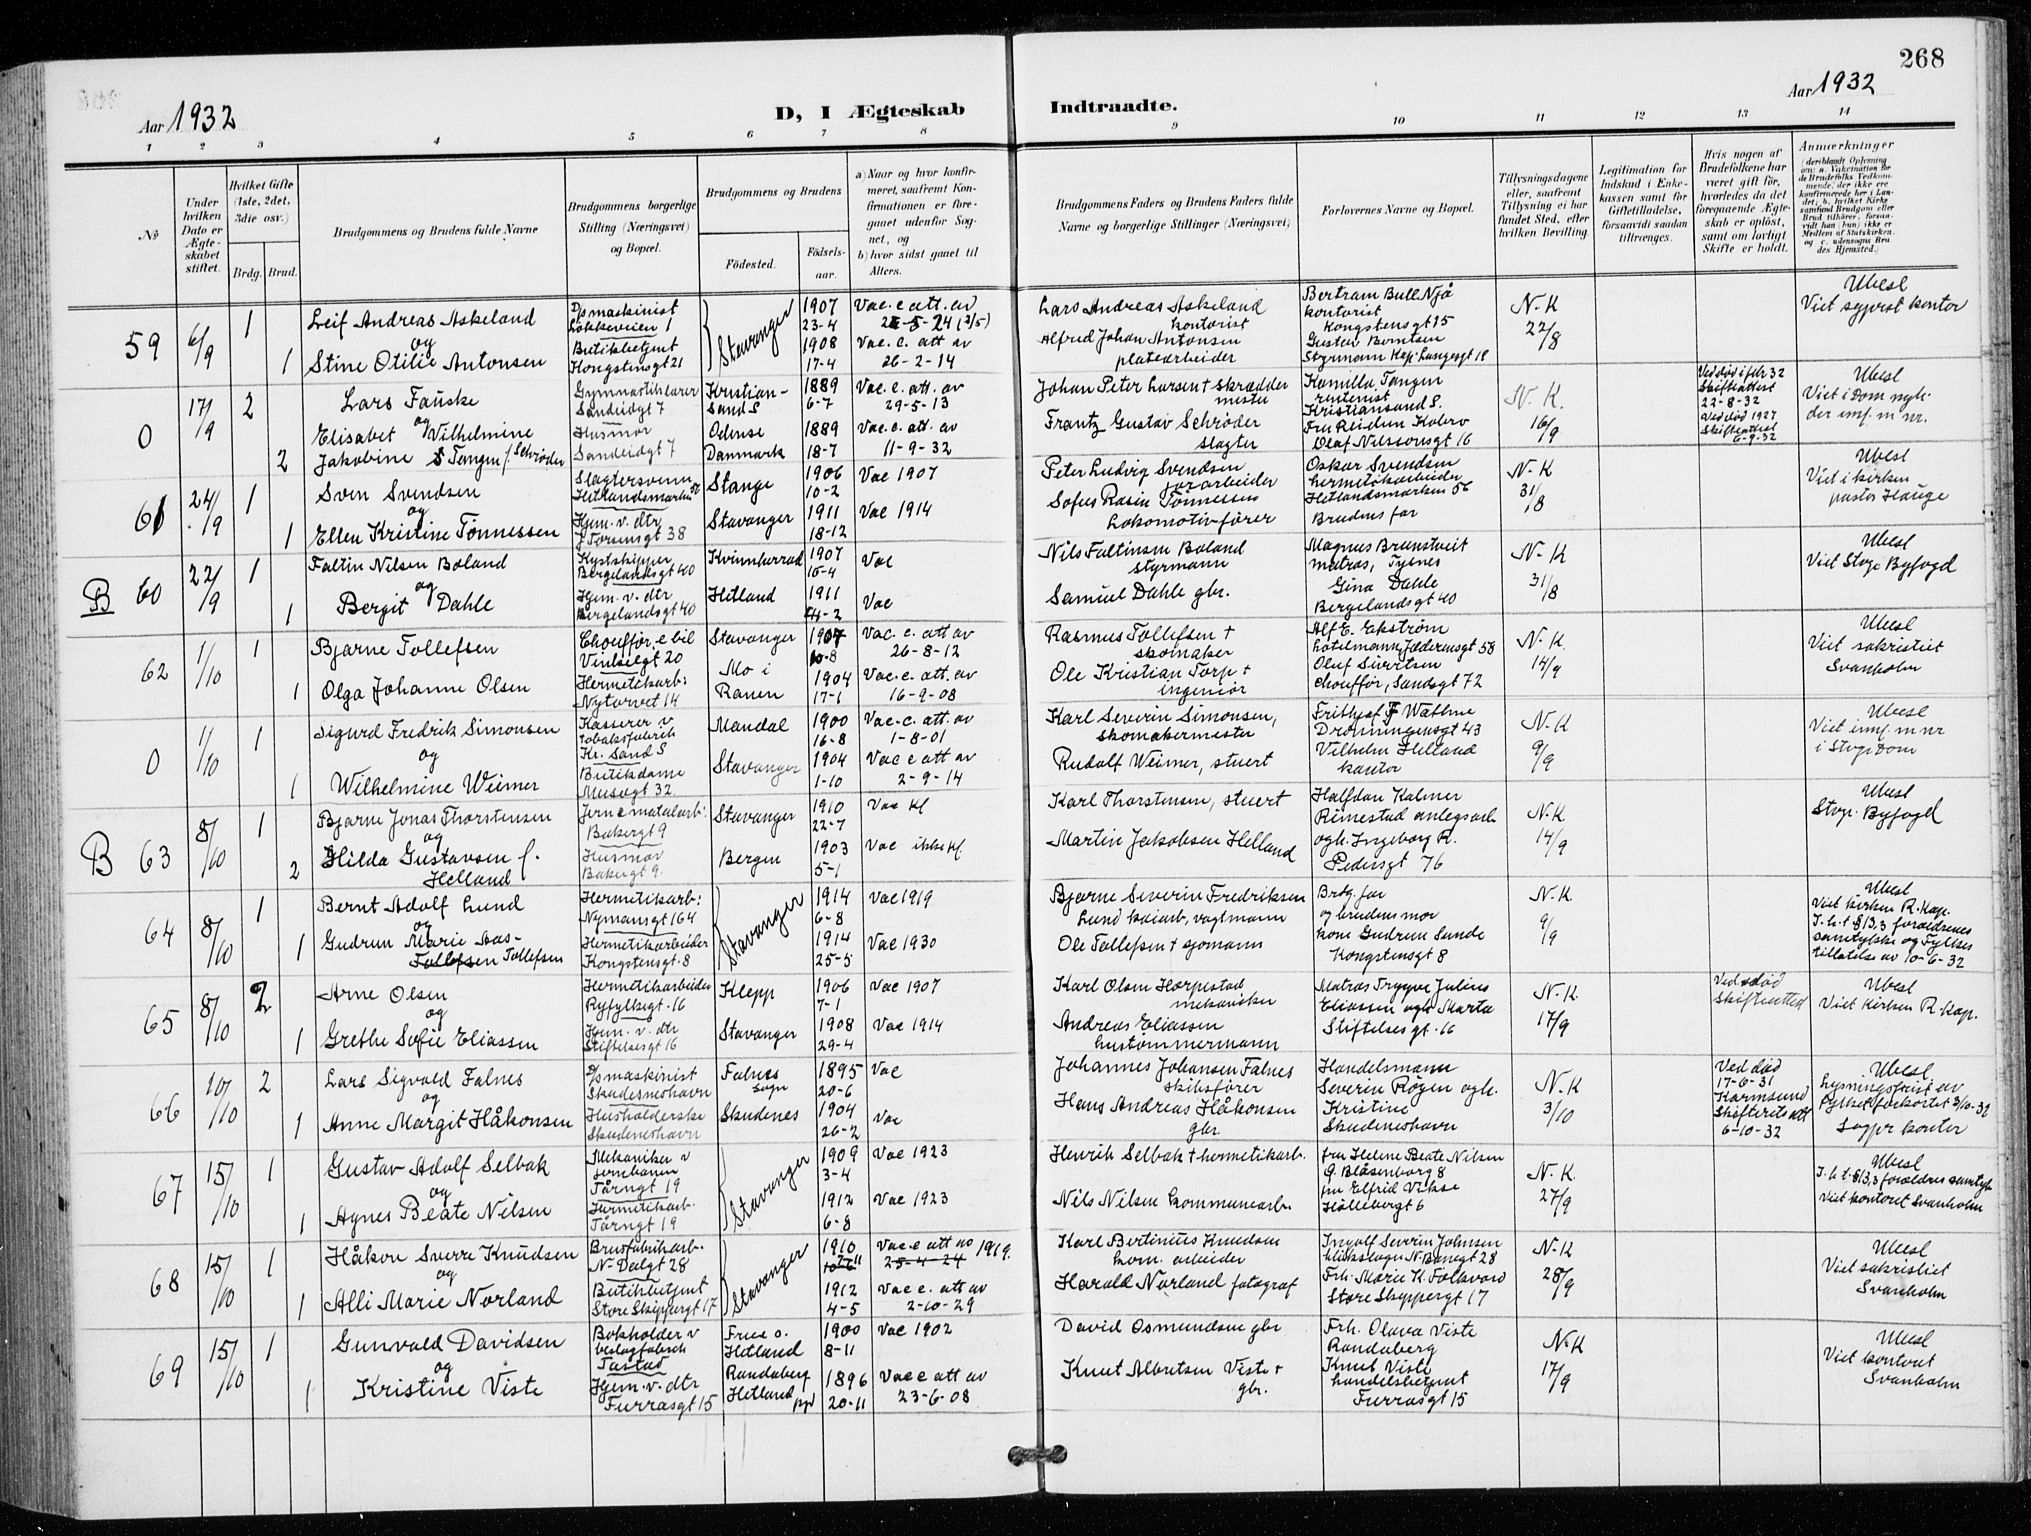 268
Aar 1932
D, I Ægteskab Indtraadte.
Aar 1932
1 2 3 4 5 6 7 8 9 10 11 12 13 14
No
Under hvilken Dato er Ægteskabet stiftet.
Hvilket Gifte (1ste, 2det, 3die osv.)
Brdg. Brud.
Brudgommens og Brudens fulde Navne
Brudgommens borgerlige Stilling (Næringsvei) og Bopæl.
Brudgommens og Brudens
Fødested.
Fødselsaar.
a) Naar og hvor konfirmeret, saafremt Konfirmationen er foregaaet udenfor Sognet, og
b) hvor sidst gaaet til Alters.
Brudgommens Faders og Brudens Faders fulde Navne og borgerlige Stillinger (Næringsvei)
Forlovernes Navne og Bopæl.
Tillysningsdagene eller, saafremt Tillysning ei har fundet Sted, efter hvilken Bevilling.
Legitimation for Indskud i Enkekassen samt for Giftetilladelse, forsaavidt saadan tiltrænges.
Hvis nogen af Brudefolkene har været gift før, hvorledes da det foregaaende Ægteskab er opløst, samt om lovligt Skifte er holdt.
Anmærkninger
59 6/9 1 Leif Andreas Askeland
og
1 Stine Otilie Antonsen
D/s maskinist
Løkkeveien 1
Butikbetjent
Kongstensgt 21
Stavanger
1907
23-4
1908
17-4
Vac. e att. av
Vac. e. att av
26-2-14
Lars Andreas Askeland
kontorist
Alfred Johan Antonsen
platearbeider
Bertram Bull Njå
kontorist
Kongstensgt 15
Gustav Berntsen
Styrmann Kap. Langesgt 18
N-K
22/8
Ubesl
0 17/9 2 Lars Fauske
og
Elisabet Vilhelmine
2 Jakobine Tangen f. Schrøder
Gymnastiklærer
Sandeidgt 7
Husmor
Sandeidgt 7
Kristian-
sand S
Odense
Danmark
1889
6-7
1889
18-7
Vac. e. att. av
29-5-13
Vac. e. att. av
11-9-32
Johan Peter Larsen + skrædder
mester
Frantz Gustav Schrøder
slagter
Kamilla Tangen
rentenist
Kristiansand S.
Olaf Nilssonsgt 16
N-K.
16/9
22-8-32
Ved død 1927
Skifteattest
6-9-32
Ubesl
61 24/9 1 Sven Svendsen
og
1 Ellen Kristine Tønnessen
Slagtersvenn
Hetlandsmarken 56
Hjem. v. dtr
Stange
Stavanger
1906
10-2
1911
18-12
Vac 1907
Vac 1914
Peter Ludvig Svendsen
Sofus Rasin Tønnessen
Lokomotivfører
Oskar Svendsen
hermetikarbeider
Hetlandsmarken 56
Brudens far
N-K
31/8
Ubesl
Viet i kirken
pastor Hauge
B 60 22/9 1 Faltin Nilsen Boland
og
1 Bergit Dahle
Kystskipper
Bergelandsgt 40
Hjem. v. dtr
Bergelandsgt 40
Kvinnherrad
Hetland
1907
15-4
1911
Vac
Vac
Nils Faltinsen Boland
styrmann
Samuel Dahle gbr.
Magnus Brunstveit
matros, Tysnes
Gina Dahle
Bergelandsgt 40
N-K
31/8
Ubesl
Viet Stvgr Byfogd
62 1/10 1 Bjarne Tollefsen
1 Olga Johanne Olsen
Vinkelgt 20
Hermetikarb:
Nytorvet 14
Stavanger
Mo i
Ranen
1904
17-1
Vac. e. att av
26-8-12
Vac. e. att. av
16-9-08
Rasmus Tollefsen +
skomaker
Ole Kristian Torp +
ingeniør
Alf E. Ekström
Oluf Sivertsen
chauffør, Sandsgt 72
N-K.
14/9
Ubesl
Viet sakristiet
Svanholm
0 1/10 1 Sigurd Fredrik Simonsen
og
1 Wilhelmine Weimer
Kasserer v
tobaksfabrik
Kr. Sand S
Butikdame
Musegt 32
Mandal
Stavanger
1900
16-8
1904
1-10
Vac. e. att. av
1-8-01
Vac e att av
2-9-14
Karl Severin Simonsen,
skomakermester
Rudolf Weimer, stuert
Dronningensgt 43
Vilhelm Helland
kantor
N-K
9/9
Ubesl
B 63 8/10 1 Bjarne Jonas Thorstensen
og
2 Hilda Gustavsen f.
Helland
Jern & metalarb:
Bakergt 9
Husmor
Bakergt 9.
Stavanger
Bergen
1910
22-7
1903
5-1
Vac kf
Vac ikke kf
Karl Thorstensen, stuert
Martin Jakobsen Helland
Halfdan Kalmer
Rimestad anlegsarb
ogh. Ingeborg R.
Pedersgt 76
N-K.
14/9
Ubesl
Stvgr. Byfogd
64 8/10 1 Bernt Adolf Lund
og
1 Gudrun Marie Aas-
Tollefsen
Hermetikarb:
Nymansgt 164
Hermetikarbeider
Kongstensgt. 8
Stavanger
1914
6-8
1914
25-5
Vac 1919
Vac 1930
Bjarne Severin Fredriksen
Lund keiarb, vagtmann
Ole Tollefsen + sjømann
Brdg. far
og brudens mor
kone Gudrun Sande
Kongstensgt 8
N-K.
9/9
Ubesl
Viet kirken R. Kap.
I. h. t § 13,3 forældrenes
samtykke og Fylkes
tillatelse av 10-6-32
65 8/10 2 Arne Olsen
og
1 Grethe Sofie Eliassen
Hermetikarbeider
Ryfylkegt. 16
Hjem. v. dtr
Stiftelsesgt 16
Klepp
Stavanger
1906
7-1
1908
29-4
Vac 1907
Vac 1914
Karl Olsen Horpestad
mekaniker
Andreas Eliassen
hustømmermann
Matros Trygve Julius
Eliassen ogh Marta
Stiftelsesgt. 16
N-K.
17/9
Ved død
skifteattest
Ubesl
Viet kirken R. Kap.
66 10/10 2 Lars Sigvald Falnes
og
1 Anne Margit Håkonsen
D/s maskinist
Skudesneshavn
Husholderske
Skudeneshavn
Falnes
sogn
Skudenes
1895
20-6
1904
26-2
Vac
Vac
Johannes Johansen Falnes
skibsfører
Hans Andreas Håkonsen
gbr.
Handelsmann
Severin Røgen ogh.
Kristine
Skudeneshavn
N-K
3/10
Ved død
17-6-31
Karmsund
Skifterets att
6-10-32
Ubesl.
Lysningsfrist av
Fylket forkortet 3/10-32
67 15/10 1 Gustav Adolf Selbak
og
1 Agnes Beate Nilsen
Mekaniker v
jernbanen
Tårngt 19
Hermetikarb.
Tårngt 19
Stavanger
1909
3-4
1912
6-8
Vac 1923
Vac 1923
Henrik Selbak + hermetikarb.
Nils Nilsen kommunearb.
fru Helene Beate Nilsen
Ø. Blåsenborg 8
fru Elfrid Vikse
N-K.
27/9
Ubesl
I. h. t. § 13,3 forældres samtyk
Viet kontoret Svanholm
68 15/10 1 Håkon Sverre Knudsen
og
1 Alli Marie Norland
Brusfabrikarb.
N-Dalgt 28
Butikbetjent
Store Skippergt 17
Stavanger
1910
1912
4-5
Vac. e att av 1919.
25-4-24
Vac e. att av
2-10-29
Karl Bertinius Knudsen
kom. arbeider
Harald Norland fotograf
Ingolf Severin Johnsen
Frk. Marie K. Folkvord
Store Skippergt 17
N-K
28/9
Ubesl
Viet sakristiet
Svanholm
69 15/10 1 Gunvald Davidsen
og
1 Kristine Viste
Bokholder v
Tastad
Hjem. v. dtr
Furrasgt 15
Frue o.
Hetland
Randaberg
Hetland
1900
8-11
1896
20-11
Vac 1902
Vac e att av
23-6-08
David Osmundsen gbr
Knut Albretsen Viste +
gbr.
Frk. Olava Viste
Randaberg
Knut Viste
handelsbetjent
Furrasgt 15
N-K
17/9
Ubesl
Viet kontoret
Svanholm